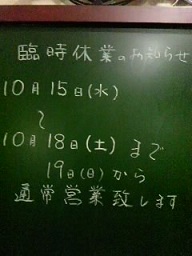 臨時休業のお知らせ
10月15日(水)
〜
10月18日(土)まで
19日(日)から
通常営業致します